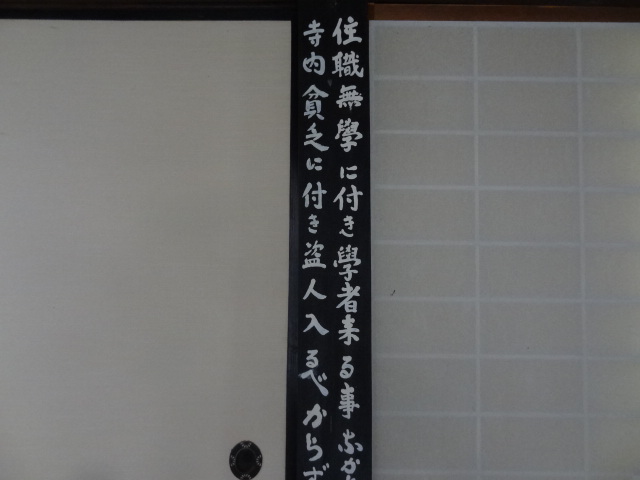 住職無學に付き學者来る事なか
寺内貧乏に付き盗人入るべからず